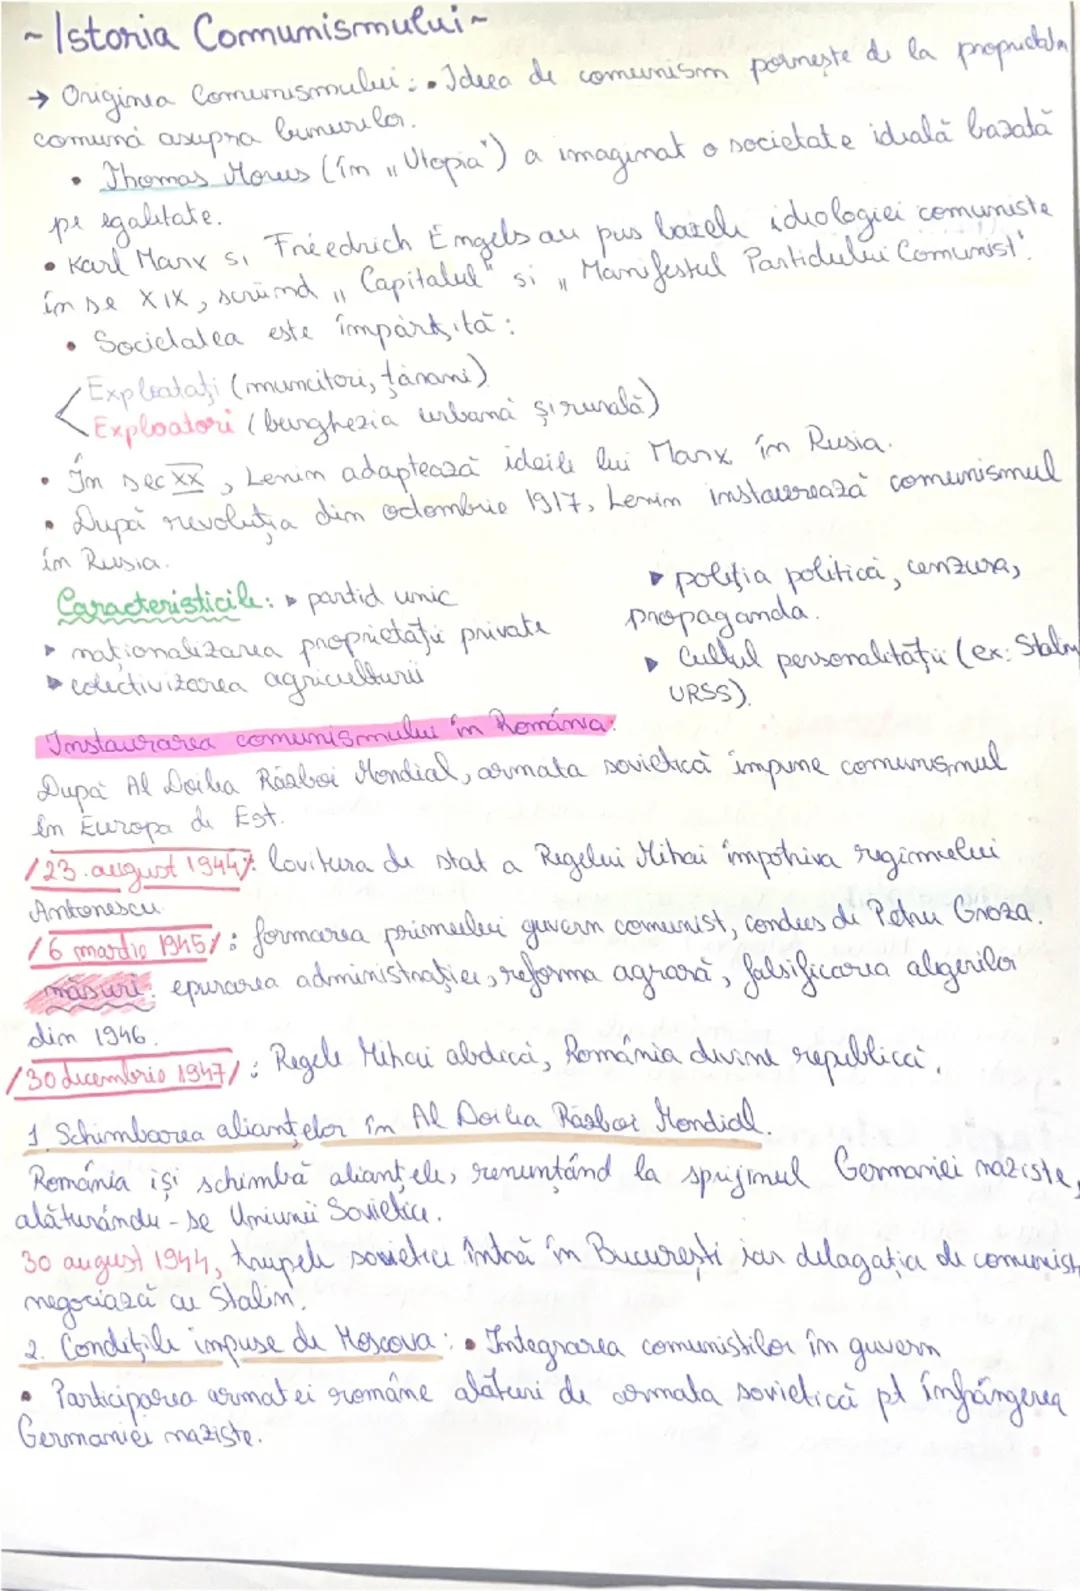 ~ Istoria Comunismului ~
→ Originea Comunismului: • Ideea de comunism pornește de la proprietatea
comună asupra bunurilor.
• Thomas Morus (în „Utopia") a imaginat o societate ideală bazată
pe egalitate.
• Karl Marx si Friedrich Engels au pus bazele ideologiei comuniste
în se XIX, scriind „Capitalul" si „Manifestul Partidului Comunist".
• Societatea este împărțită:
Exploatați (muncitori, țărani)
Exploatori (burghezia urbană și rurală)
• În sec XX, Lenin adaptează ideile lui Marx în Rusia.
• După revoluția din octombrie 1917, Lenin instaurează comunismul
în Rusia.
Caracteristicile: ▸ partid unic
▸ naționalizarea proprietății private
▸ colectivizarea agriculturii
▸ poliția politică, cenzura,
propaganda.
▸ Cultul personalității (ex: Stalin
URSS).
Instaurarea comunismului în România:
După Al Doilea Război Mondial, armata sovietică impune comunismul
în Europa de Est.
/23.august 1944/: lovitura de stat a Regelui Mihai împotriva regimului
Antonescu.
/6 martie 1945/: formarea primului guvern comunist, condus de Petru Groza.
măsuri: epurarea administrației, reforma agrară, falsificarea alegerilor
din 1946.
/30 decembrie 1947/: Regele Mihai abdică, România devine republică.
1 Schimbarea alianțelor în Al Doilea Război Mondial.
România își schimbă alianțele, renunțând la sprijinul Germaniei naziste,
alăturându-se Uniunii Sovietice.
30 august 1944, trupele sovietice întră în București iar delagația de comunist
negociază cu Stalin.
2. Condițiile impuse de Moscova: • Integrarea comuniștilor în guvern
• Participarea armatei române alături de armata sovietică pt înfrângerea
Germaniei naziste.